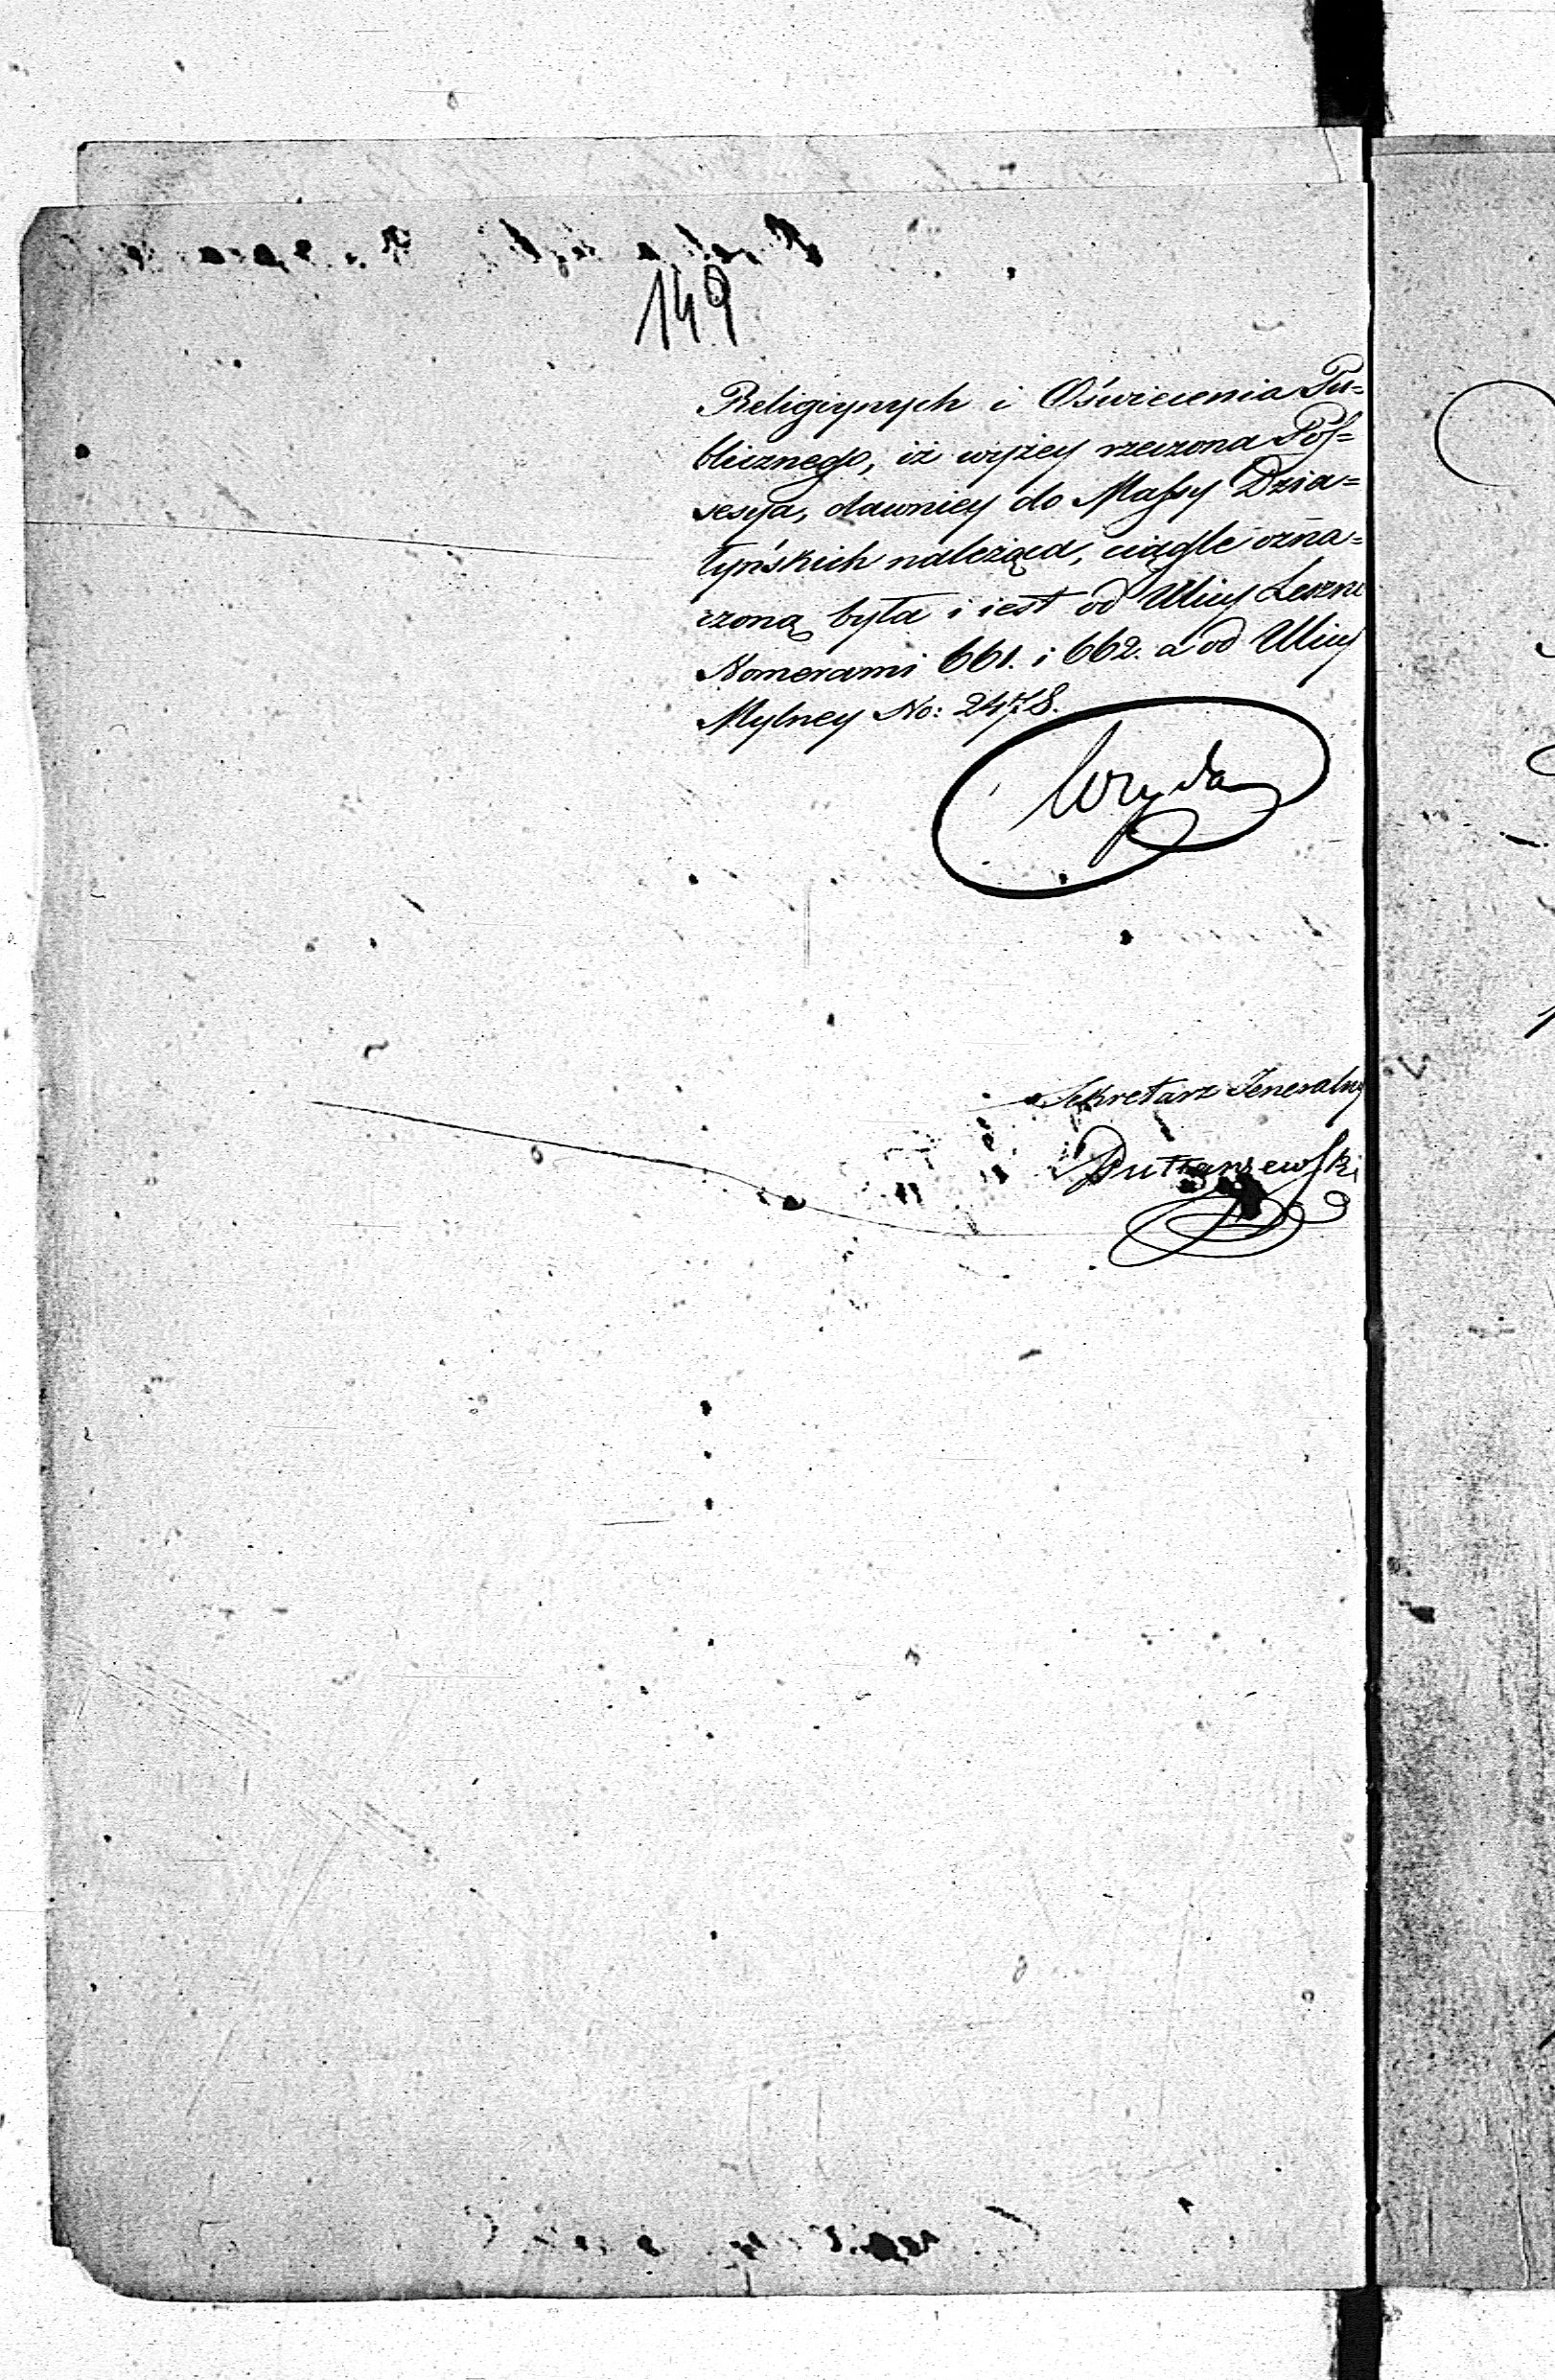 149
Religiynych i Oświecenia Pu=
blicznego, iż wyżey rzeczona Pos=
sesya, dawniey do Massy Dzia=
łyńskich należąca, ciągle ozna=
czoną była i iest od Ulicy Leszno
Nomerami 661. i 662. a od Ulicy
Mylney No: 2478.
Sekretarz Jeneralny